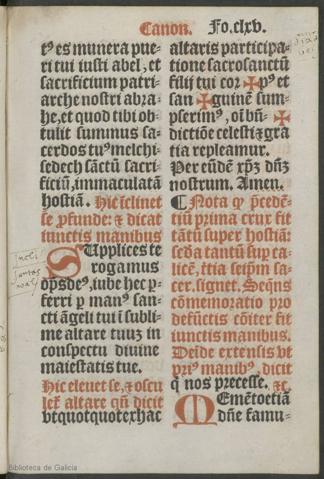 Canon. Fo.clxv.
tꝰ es munera pue⸗
ri tui iusti abel, et
sacrificium patri⸗
arche nostri abra⸗
he, et quod tibi ob⸗
tulit summus sa⸗
cerdos tuꝰ melchi⸗
sedech sāctū sacri⸗
ficiū, immaculatā
hostiā. Hic īclinet
se ꝓfunde: ⁊ dicat
iunctis manibus
SUpplices te
rogamus
oīpsdeꝰ, iube hec ꝑ⸗
ferri ꝑ manꝰ san⸗
cti āgeli tui ī subli⸗
me altare tuuʒ in
conspectu diuine
maiestatis tue.
Hic eleuet se, ⁊ oscu
let̄ altare qn̄ dicit
vt quotquot ex hac
altaris participa⸗
tione sacrosanctū
filij tui cor ✠ pꝰ et
san ✠ guinē sum⸗
pserimꝰ, oī bn̄ ✠
dictiōe celesti ⁊ gra
tia repleamur.
Per eūdē xp̄ʒ dn̄ʒ
nostrum. Amen.
¶ Nota ꝙ p̄cedē⸗
tiū prima crux fit
tātū super hostiā:
secūda tātū suꝑ ca⸗
licē, t̄tia seip̄m sa⸗
cer. signet. Seq̄ns
cōmemoratio pro
defūctis cōiter fit
iunctis manibus.
Deīde extensis vt
priꝰ manibꝰ, dicit
q̄ nos precesse. ⁊c̄
MEmētoetiā
dn̄e famu⸗
Biblioteca de Galicia